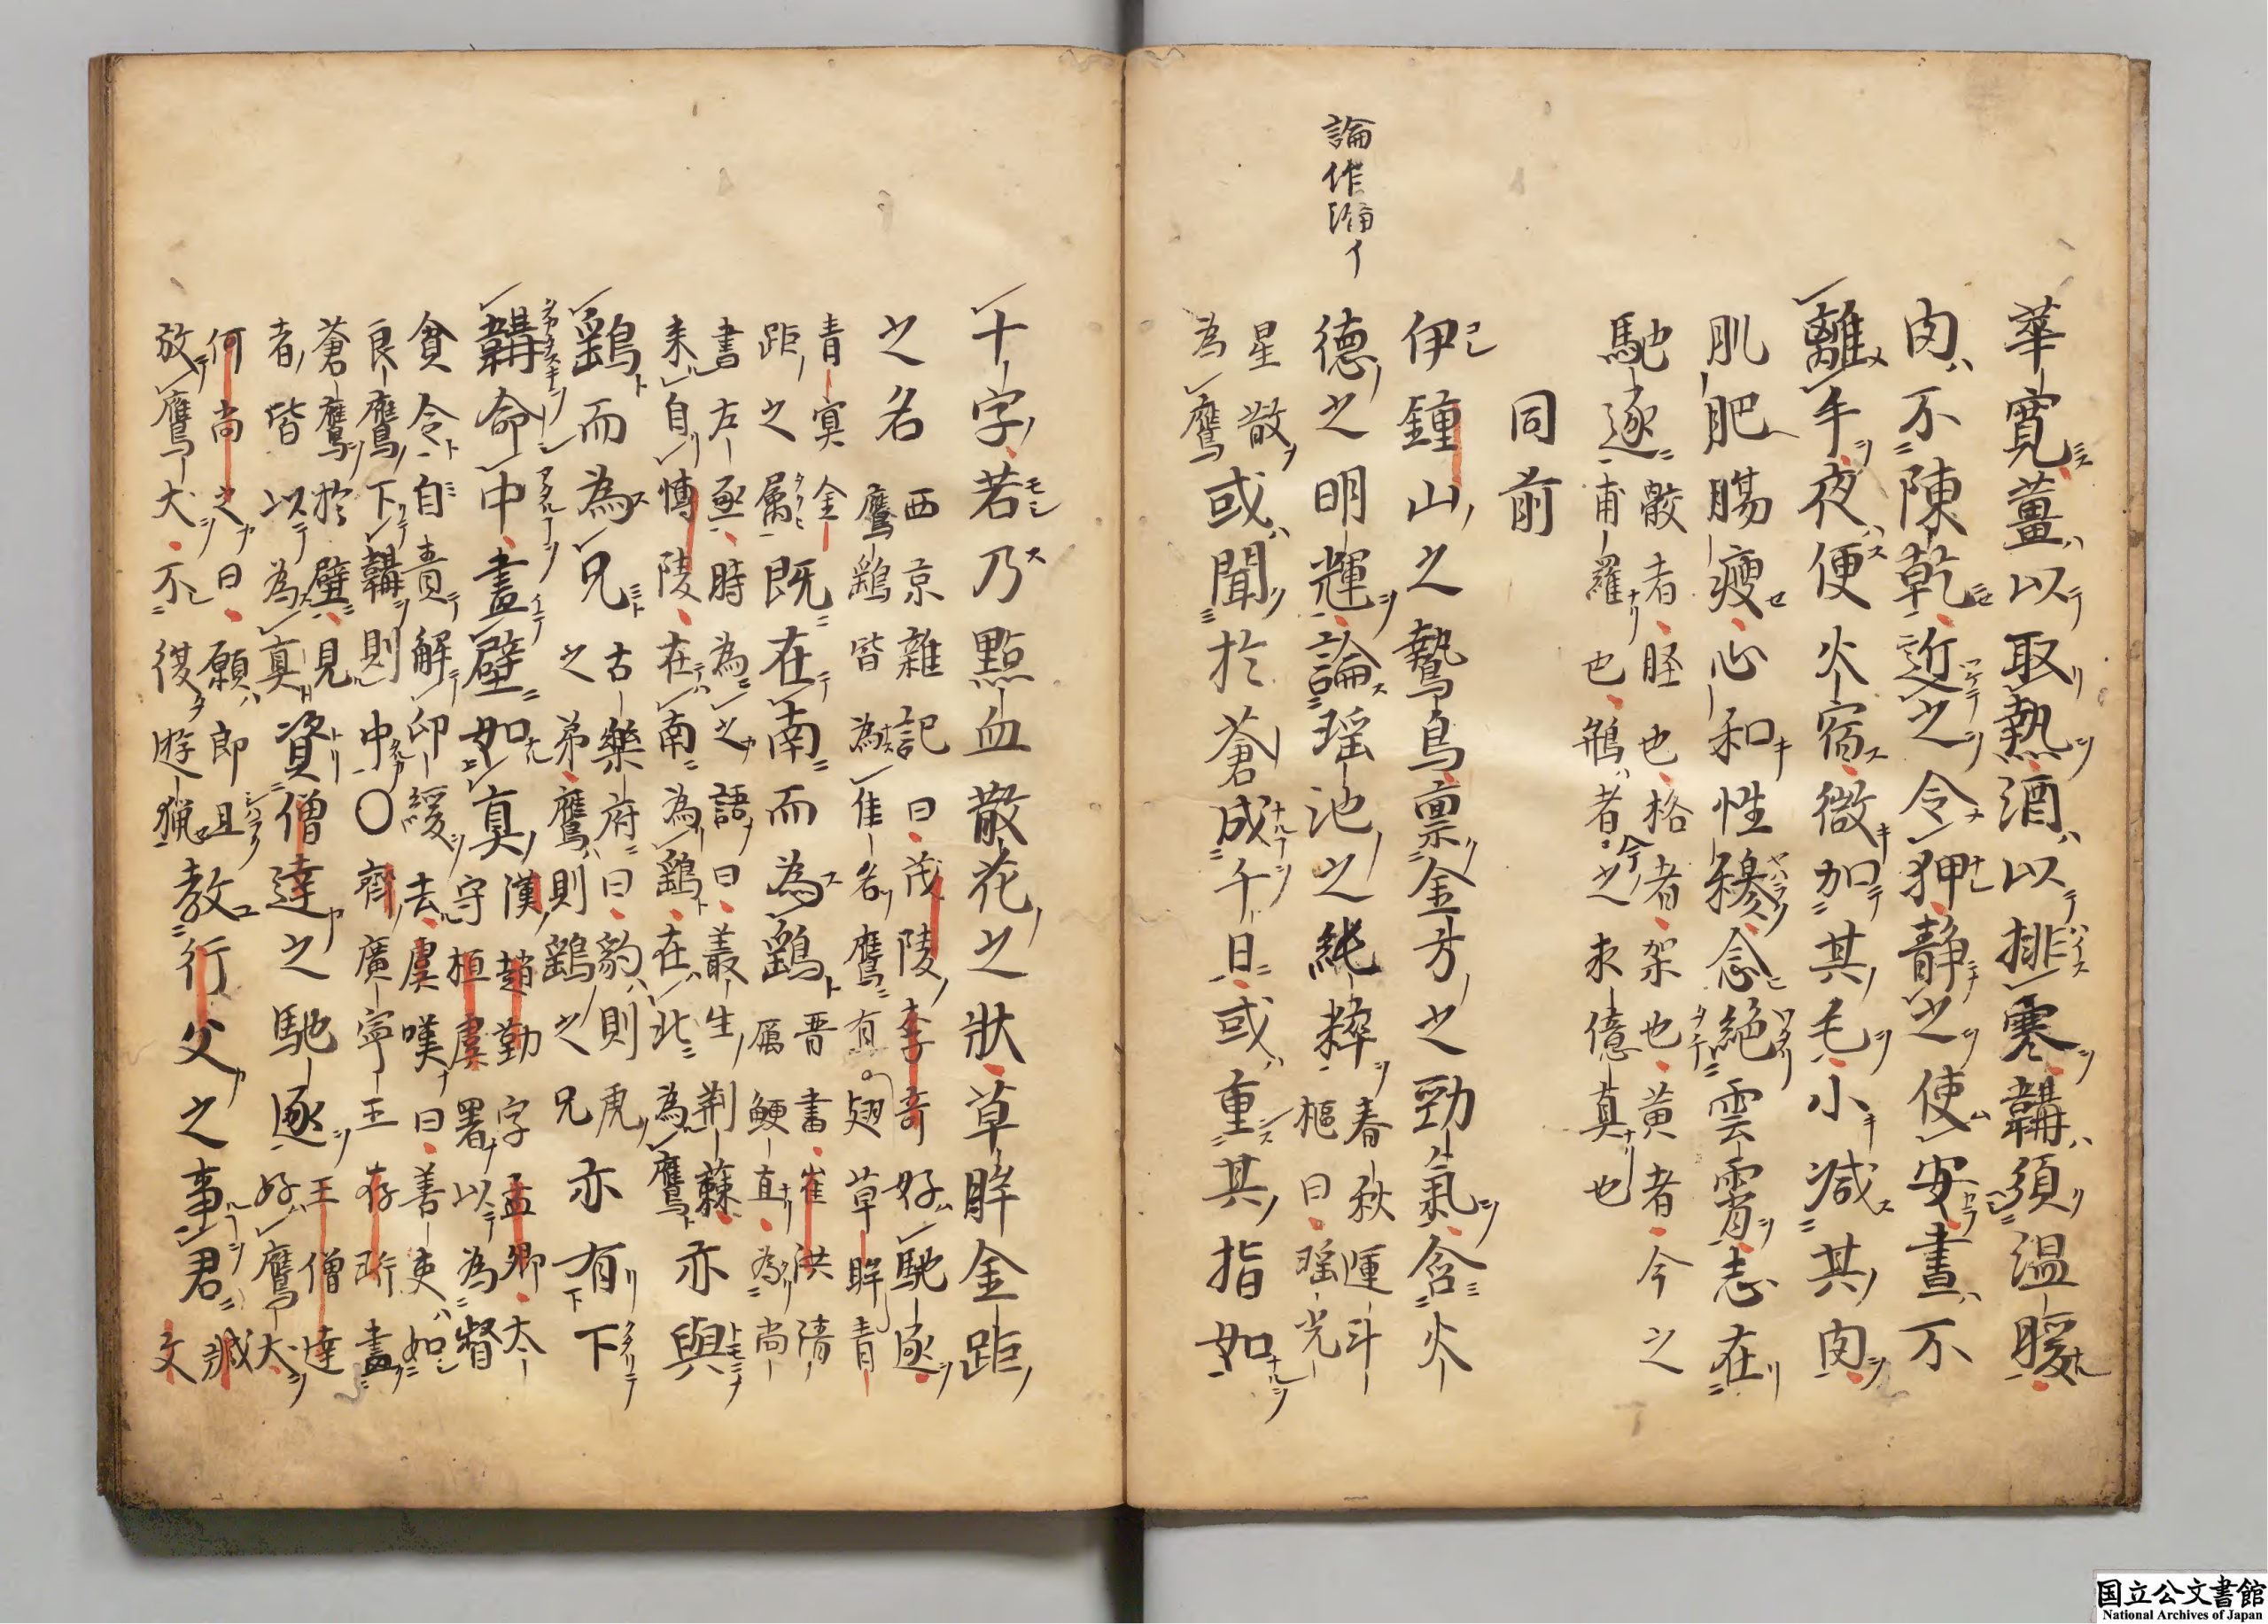 論作淪イ
華寛薑以取熱酒以排寒韝須温暖
肉不陳乾近之令狎静之使安晝不
離手夜便火宿微加其毛小減其肉
肌肥腸瘦心和性穆念絶雲霄志在
馳逐骹者脛也格者架也黄者今之
甫羅也鵃者今之求億真也
同前
伊鍾山之鷙鳥禀金方之勁氣含火
德之明輝論瑶池之純粹春秋運斗
樞曰瑶光
星散
為鷹或聞於蒼成千日或重其指如
十字若乃點血散花之狀草眸金距
之名西京雜記曰茂陵李竒好馳逐
鷹鷂皆為佳名鷹有翅草眸青
青冥金
距之属既在南而為鷂晋書崔洪清
厲鯁直為尚
書左丞時為之語曰叢生荆蕀
来自博陵在南為鷂在北為鷹亦與
鷂而為兄古樂府曰豹則虎
之弟鷹則鷂之兄亦有下
韝命中畫壁如真漢趙勤字孟卿太
守桓虞署以為督
貪令自責解印綬去虞嘆曰善吏如
良鷹下韝則中〇齊廣寧王存珩畫
蒼鷹於壁見
者皆以為真資僧達之馳逐王僧達
好鷹犬
何尚之曰願郎且
放鷹犬不復遊猟教行父之事君臧
文